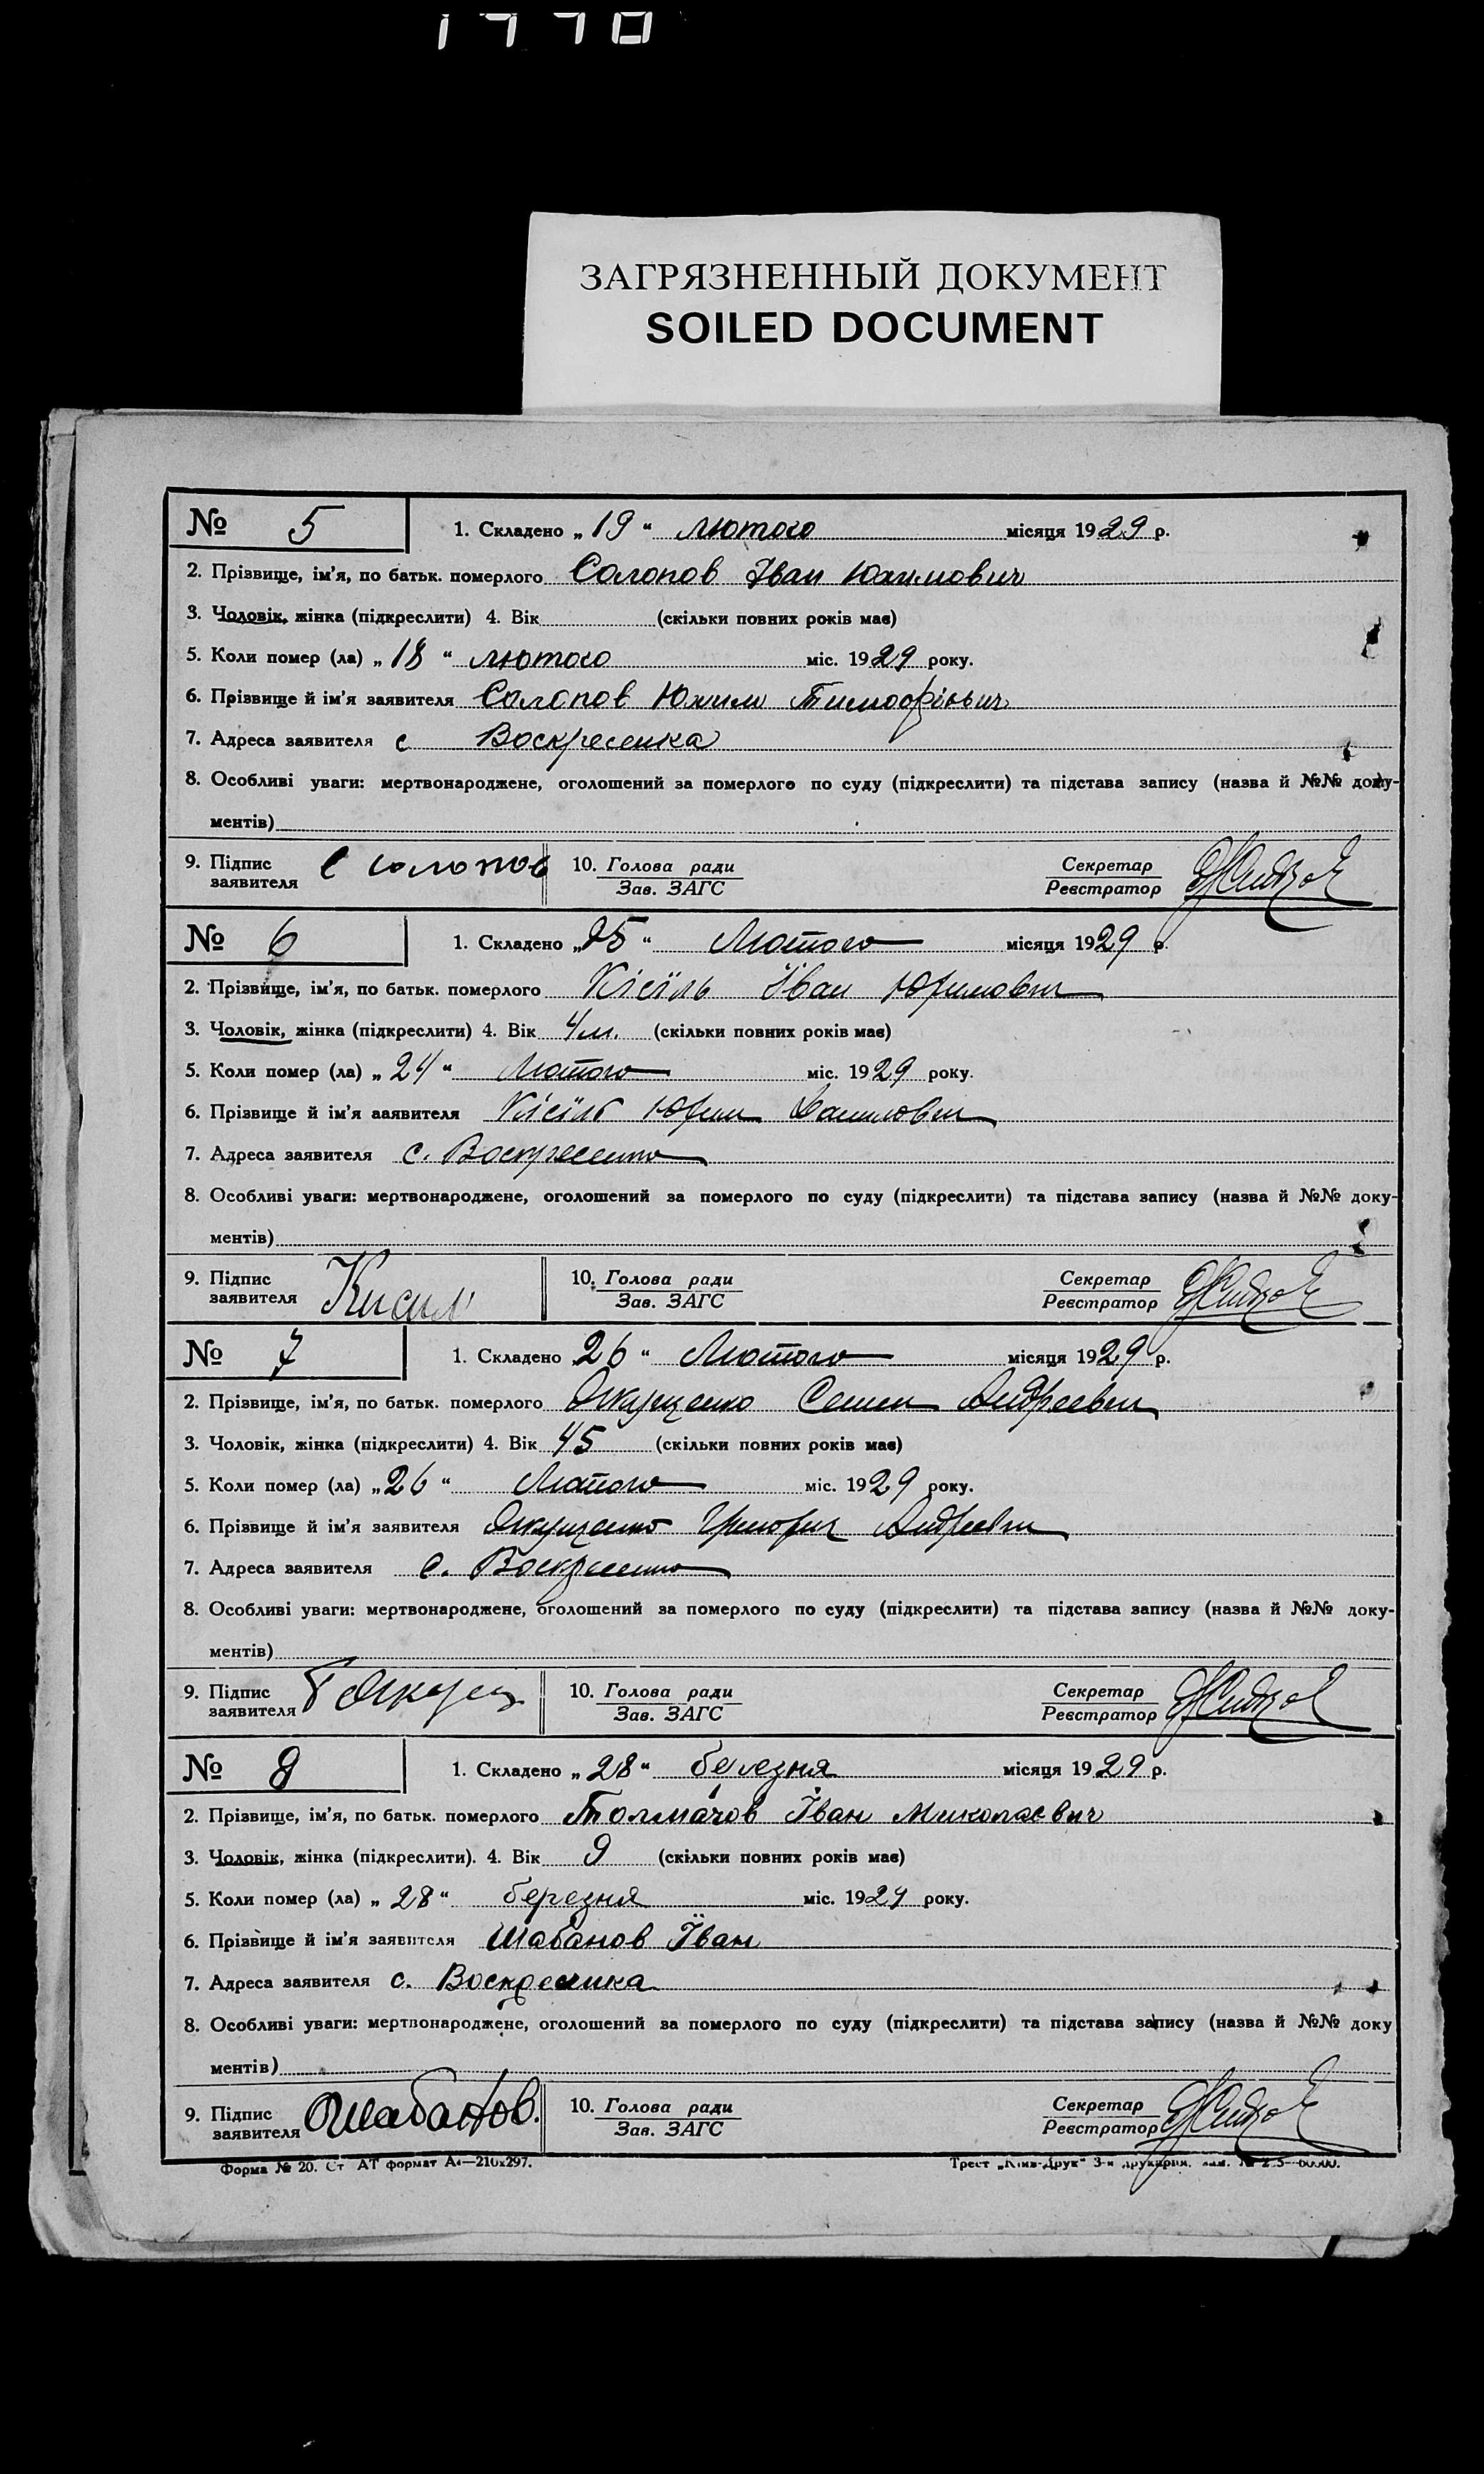 1990
ЗАГРЯЗНЕННЫЙ ДОКУМЕНТ
SOILED DOCUMENT
№ 5 1. Складено „19“ лютого місяця 1929 р.
2. Прізвище, ім'я, по батьк. померлого Солопов Іван Юхимович
3. Чоловік, жінка (підкреслити) 4. Вік (скільки повних років має)
5. Коли помер (ла) „18“ лютого міс. 1929 року.
6. Прізвище й ім'я заявителя Солопов Юхим Тимофійович
7. Адреса заявителя с Воскресенка
8. Особливі уваги: мертвонароджене, оголошений за померлого по суду (підкреслити) та підстава запису (назва й №№ доку-
ментів)
9. Підпис заявителя Е Солопов 10. Голова ради Зав. ЗАГС Секретар Реєстратор
№ 6 1. Складено „25“ Лютого місяця 1929 р.
2. Прізвище, ім'я, по батьк. померлого Кісіль Іван Юфимович
3. Чоловік, жінка (підкреслити) 4. Вік 4 м. (скільки повних років має)
5. Коли помер (ла) „24“ Лютого міс. 1929 року.
6. Прізвище й ім'я заявителя Кісіль Юфим Данилович
7. Адреса заявителя с. Воскресенка
8. Особливі уваги: мертвонароджене, оголошений за померлого по суду (підкреслити) та підстава запису (назва й №№ доку-
ментів)
9. Підпис заявителя Кисил 10. Голова ради Зав. ЗАГС Секретар Реєстратор
№ 7 1. Складено 26“ Лютого місяця 1929 р.
2. Прізвище, ім'я, по батьк. померлого Якущенко Семен Андреевич
3. Чоловік, жінка (підкреслити) 4. Вік 45 (скільки повних років має)
5. Коли помер (ла) „26“ Лютого міс. 1929 року.
6. Прізвище й ім'я заявителя Якущенко Григорий Андреевич
7. Адреса заявителя с. Воскресенка
8. Особливі уваги: мертвонароджене, оголошений за померлого по суду (підкреслити) та підстава запису (назва й №№ доку-
ментів)
9. Підпис заявителя Г Якущ 10. Голова ради Зав. ЗАГС Секретар Реєстратор
№ 8 1. Складено „28“ березня місяця 1929 р.
2. Прізвище, ім'я, по батьк. померлого Толмачов Іван Миколаєвич
3. Чоловік, жінка (підкреслити). 4. Вік 9 (скільки повних років має)
5. Коли помер (ла) „28“ березня міс. 1929 року.
6. Прізвище й ім'я заявителя Шабанов Їван
7. Адреса заявителя с. Воскресенка
8. Особливі уваги: мертвонароджене, оголошений за померлого по суду (підкреслити) та підстава запису (назва й №№ доку
ментів)
9. Підпис заявителя Шабанов. 10. Голова ради Зав. ЗАГС Секретар Реєстратор
Форма № 20. Ст АТ формат А4—210х297. Трест „Київ-Друк“ 3-я друкарня.